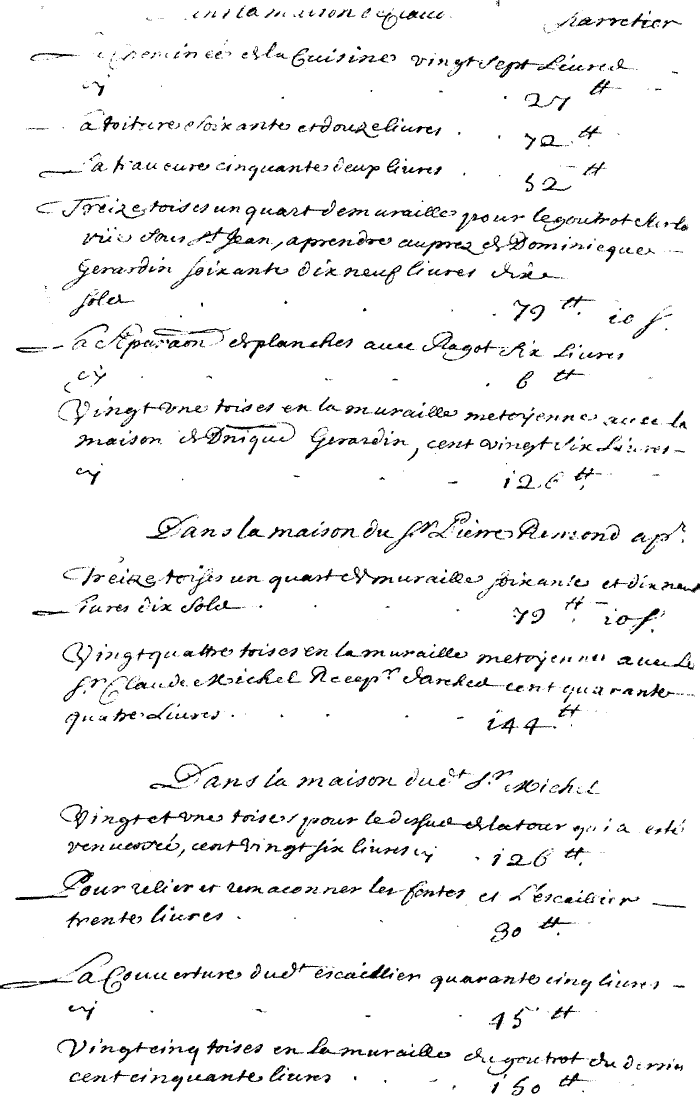 dans la maison
charretier
La Cheminée de la Cuisine vingt sept Livres
cy . . 27 tt
La toiture soixante et douze livres . . 72 tt
La travure cinquante deux livres . 52 tt
Treize toises un quart de muraille pour le goutrot sur la
rüe Sous St Jean, a prendre auprez de Dominicque
Gerardin soixante dix neuf livres dix
solz . . . 79 tt. 10 s.
La Separaon de planches avec Ragot Six Livres
cy . . . 6 tt
Vingt une toises en la muraille metoyenne avec la
maison de Dnique Gerardin, cent vingt Six Livres
cy . . 126 tt.
Dans la maison du Sr Pierre Remond apr.
Treize toises un quart de muraille soixante et dix neuf
livres dix solz . . 79 tt 10 s.
Vingt quattre toises en la muraille metoyenne avec Le
Sr Claude Michel Recepr cent quarante
quatre Livres . . . 144 tt.
Dans la maison dudt Sr Michel
Vingt et une toises pour le dessus de la tour qui a esté
renversé, cent vingt six livres cy . 126 tt.
Pour relier et remaconner les fentes et L'escailier
trente livres . 30 tt.
La Couverture dudt escaillier quarante cinq livres
cy . . . 45 tt
Vingt cinq toises en la muraille du goutrot du derrier
cent cinquante livres . . . 150 tt.